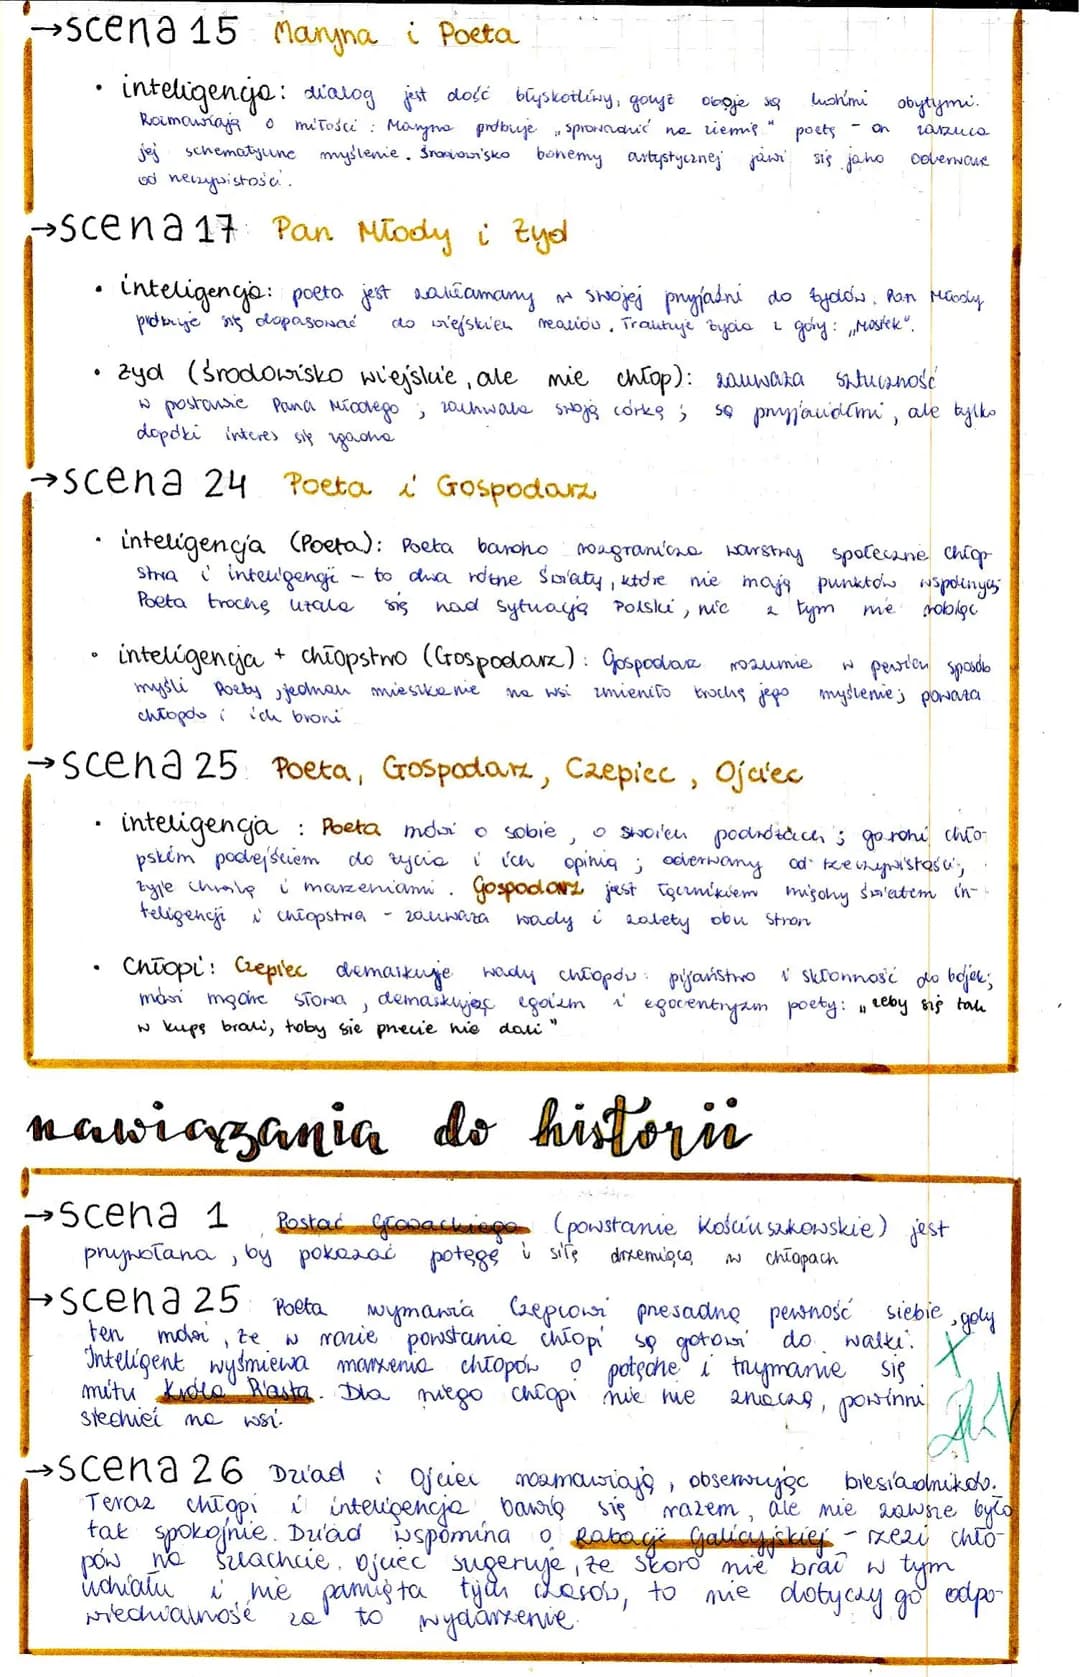 →scena 15 Maryna i Poeta
• inteligencja: dialog jest dość błyskotliwy, gdyż oboje są ludźmi obytymi.
Rozmawiają o miłości: Maryna próbuje „sprowadzić na ziemię" poetę - on zarzuca
jej schematyczne myślenie. Środowisko bohemy artystycznej jawi się jako oderwane
od rzeczywistości.
→scena 17 Pan Młody i Żyd
• inteligencja: poeta jest zakłamany w swojej przyjaźni do żydów. Pan Młody
próbuje się dopasować do wiejskich realiów. Traktuje Żyda z góry: „Mosiek".
• żyd (środowisko wiejskie, ale nie chłop): zauważa sztuczność
w postawie Pana Młodego; zachwala swoją córkę; są przyjaciółmi, ale tylko
dopóki interes się zgadza
→scena 24 Poeta i Gospodarz
• inteligencja (Poeta): Poeta bardzo rozgranicza warstwy społeczne chłop-
stwa i inteligencji - to dwa różne światy, które nie mają punktów wspólnych
Poeta trochę użala się nad sytuacją Polski, nic z tym nie robiąc
• inteligencja + chłopstwo (Gospodarz): Gospodarz rozumie w pewien sposób
myśli Poety, jednak mieszkanie na wsi zmieniło trochę jego myślenie; poważa
chłopów i ich broni
→scena 25 Poeta, Gospodarz, Czepiec, Ojciec
• inteligencja: Poeta mówi o sobie, o swoich podróżach; gardzi chło-
pskim podejściem do życia i ich opinią; oderwany od rzeczywistości,
żyje chwilą i marzeniami. Gospodarz jest łącznikiem między światem in-
teligencji i chłopstwa - zauważa wady i zalety obu stron
• Chłopi: Czepiec demaskuje wady chłopów: pijaństwo i skłonność do bójek;
mówi mądre słowa, demaskując egoizm i egocentryzm poety: „żeby się tak
w kupę brali, toby sie przecie nie dali"
nawiązania do historii
→scena 1 Postać Głowackiego (powstanie Kościuszkowskie) jest
przywołana, by pokazać potęgę i siłę drzemiącą w chłopach
→scena 25 Poeta wymawia Czepcowi przesadną pewność siebie, gdy
ten mówi, że w razie powstania chłopi są gotowi do walki.
Inteligent wyśmiewa marzenia chłopów o potędze i trzymanie się
mitu Króla Piasta. Dla niego chłopi nic nie znaczą, powinni
siedzieć na wsi.
→scena 26 Dziad i Ojciec rozmawiają, obserwując biesiadników.
Teraz chłopi i inteligencja bawią się razem, ale nie zawsze było
tak spokojnie. Dziad wspomina o Rabacji Galicyjskiej - rzezi chło-
pów na szlachcie. Ojciec sugeruje, że skoro nie brał w tym
udziału i nie pamięta tych czasów, to nie dotyczy go odpo-
wiedzialność za to wydarzenie.